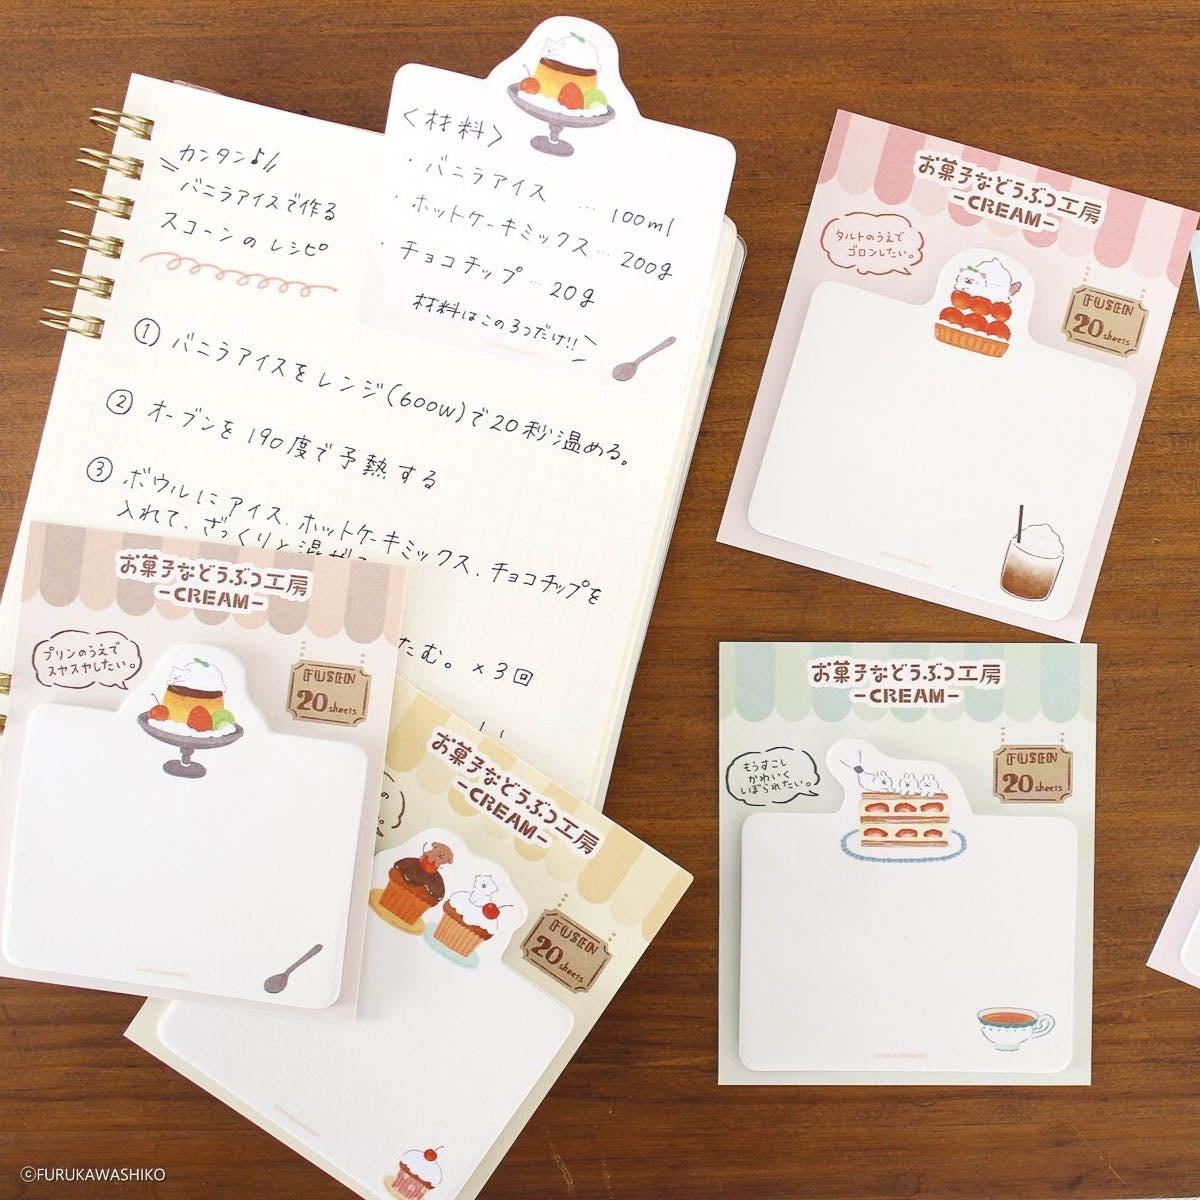 カンタン♪
バニラアイスで作る
スコーンのレシピ
〈材料〉
・バニラアイス … 100ml
・ホットケーキミックス … 200g
・チョコチップ … 20g
材料はこの3つだけ!!
① バニラアイスをレンジ(600W)で20秒温める。
② オーブンを190度で予熱する
③ ボウルにアイス、ホットケーキミックス、チョコチップを
入れて、ざっくりと混ぜ
たむ。×3回
お菓子などうぶつ工房
-CREAM-
タルトのうえで
ゴロンしたい。
FUSEN
20 sheets
FURUKAWASHIKO
お菓子などうぶつ工房
-CREAM-
プリンのうえで
スヤスヤしたい。
FUSEN
20 sheets
FURUKAWASHIKO
お菓子などうぶつ工房
-CREAM-
FUSEN
20 sheets
FURUKAWASHIKO
お菓子などうぶつ工房
-CREAM-
もうすこし
かわいく
しぼられたい。
FUSEN
20 sheets
FURUKAWASHIKO
©FURUKAWASHIKO